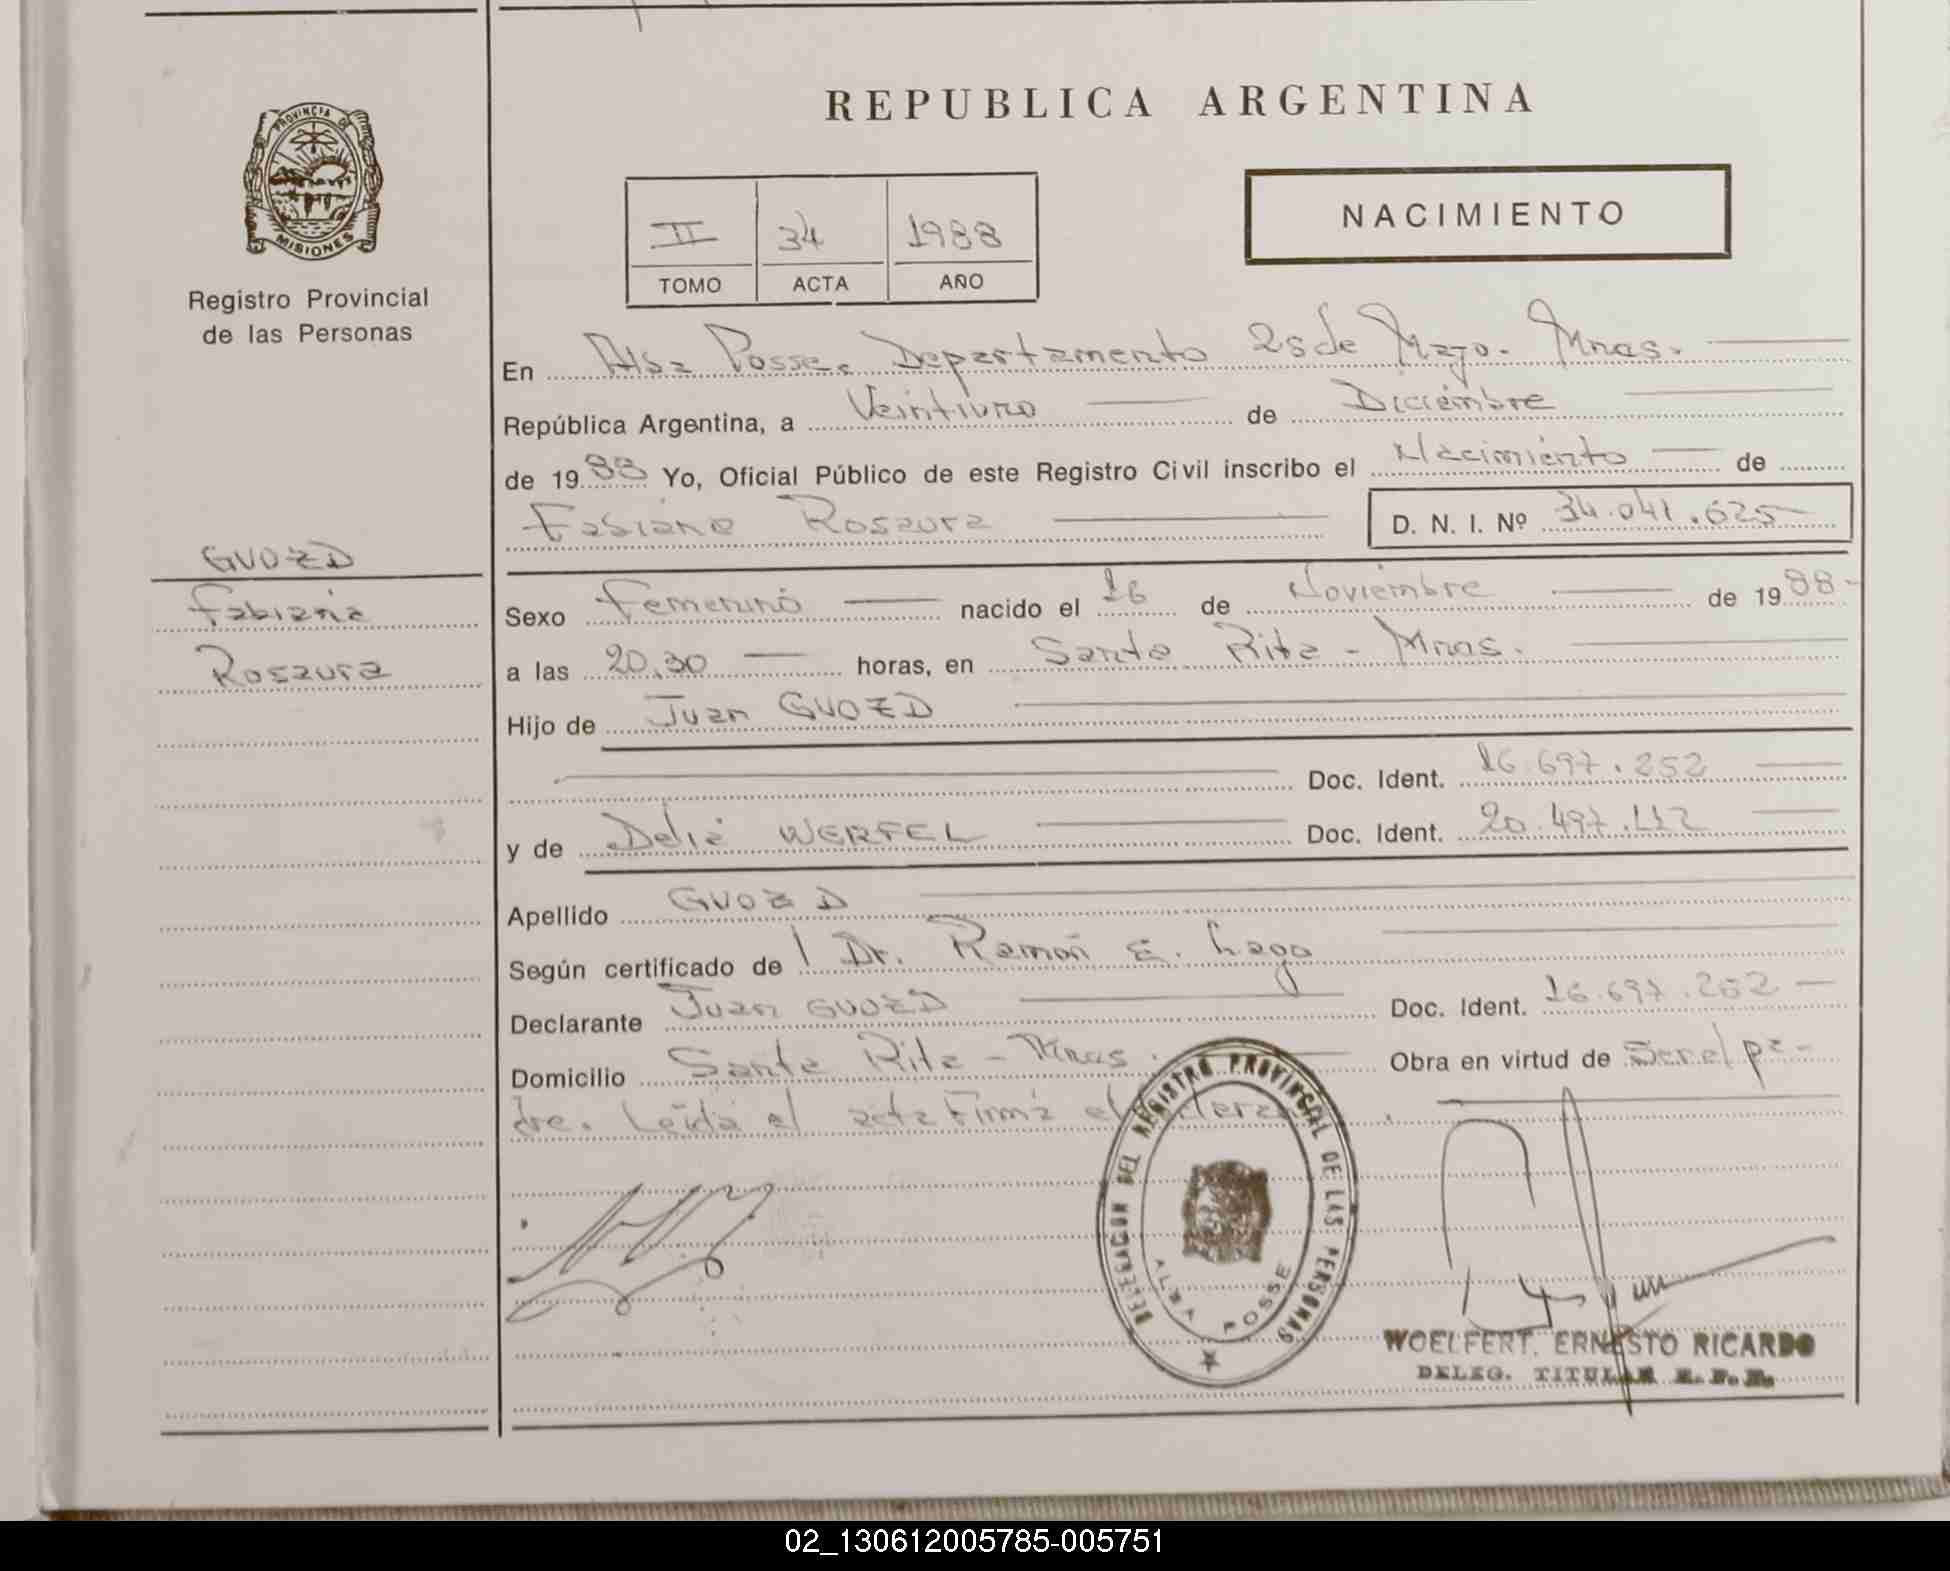 REPUBLICA ARGENTINA
PROVINCIA DE
MISIONES
Registro Provincial
de las Personas
II 34 1988
TOMO ACTA AÑO
NACIMIENTO
En Alba Posse. Departamento 25 de Mayo. Mnas.
República Argentina, a Veintiuno de Diciembre
de 1988 Yo, Oficial Público de este Registro Civil inscribo el Nacimiento de
Fabiana Rosaura D. N. I. Nº 34.041.625
GVOZD
Fabiana
Rosaura
Sexo Femenino nacido el 16 de Noviembre de 1988
a las 20,30 horas, en Santa Rita - Mnas.
Hijo de Juan GVOZD
Doc. Ident. 16.697.252
y de Delia WERFEL Doc. Ident. 20.497.112
Apellido GVOZD
Según certificado de Dr. Ramón E. Lago
Declarante Juan GVOZD Doc. Ident. 16.697.252
Domicilio Santa Rita - Mnas. Obra en virtud de Ser el pa-
dre. Leída el acta Firma el
DELEGACION DEL REGISTRO PROVINCIAL DE LAS PERSONAS
ALBA POSSE
WOELFERT. ERNESTO RICARDO
DELEG. TITULAR R. P. P.
02_130612005785-005751